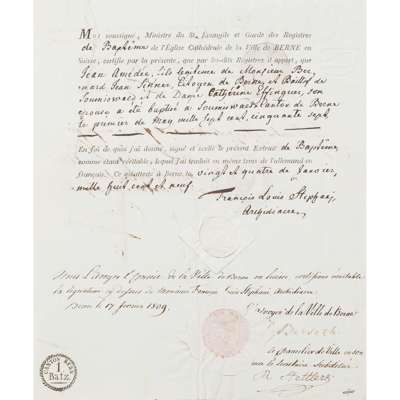 Moi soussigné, Ministre du St. Evangile et Garde des Registres
de Baptême de l'Eglise Cathédrale de la Ville de BERNE en
Suisse, certifie par la présente, que par les-dits Registres il appert, que
Jean Amédée, fils légitime de Monsieur Ber-
nard Jean Sinner, Citoyen de Berne, et Baillif de
Soumiswald et de Dame Cathérine Effinguer, son
épouse a été baptisé à Soumiswald Canton de Berne
le premier de May, mille sept cent, cinquante sept.
En foi de quoi j'ai donné, signé et scellé le présent Extrait de Baptême,
comme étant véritable, lequel j'ai traduit en même tems de l'allemand en
français. Ce qu'atteste à Berne, le vingt et quatre de Janvier,
mille huit cent et neuf.
François Louis Stephani
Archidiacre.
Nous l'Avoyer de la Ville de Berne en Suisse, certifions véritable
la signature ci dessus de Monsieur François Louis Stephani Archidiacre
Berne le 17 fevrier 1809.
L'Avoyer de la Ville de Berne
le Secretaire
CANTON BERN
1
Batz.